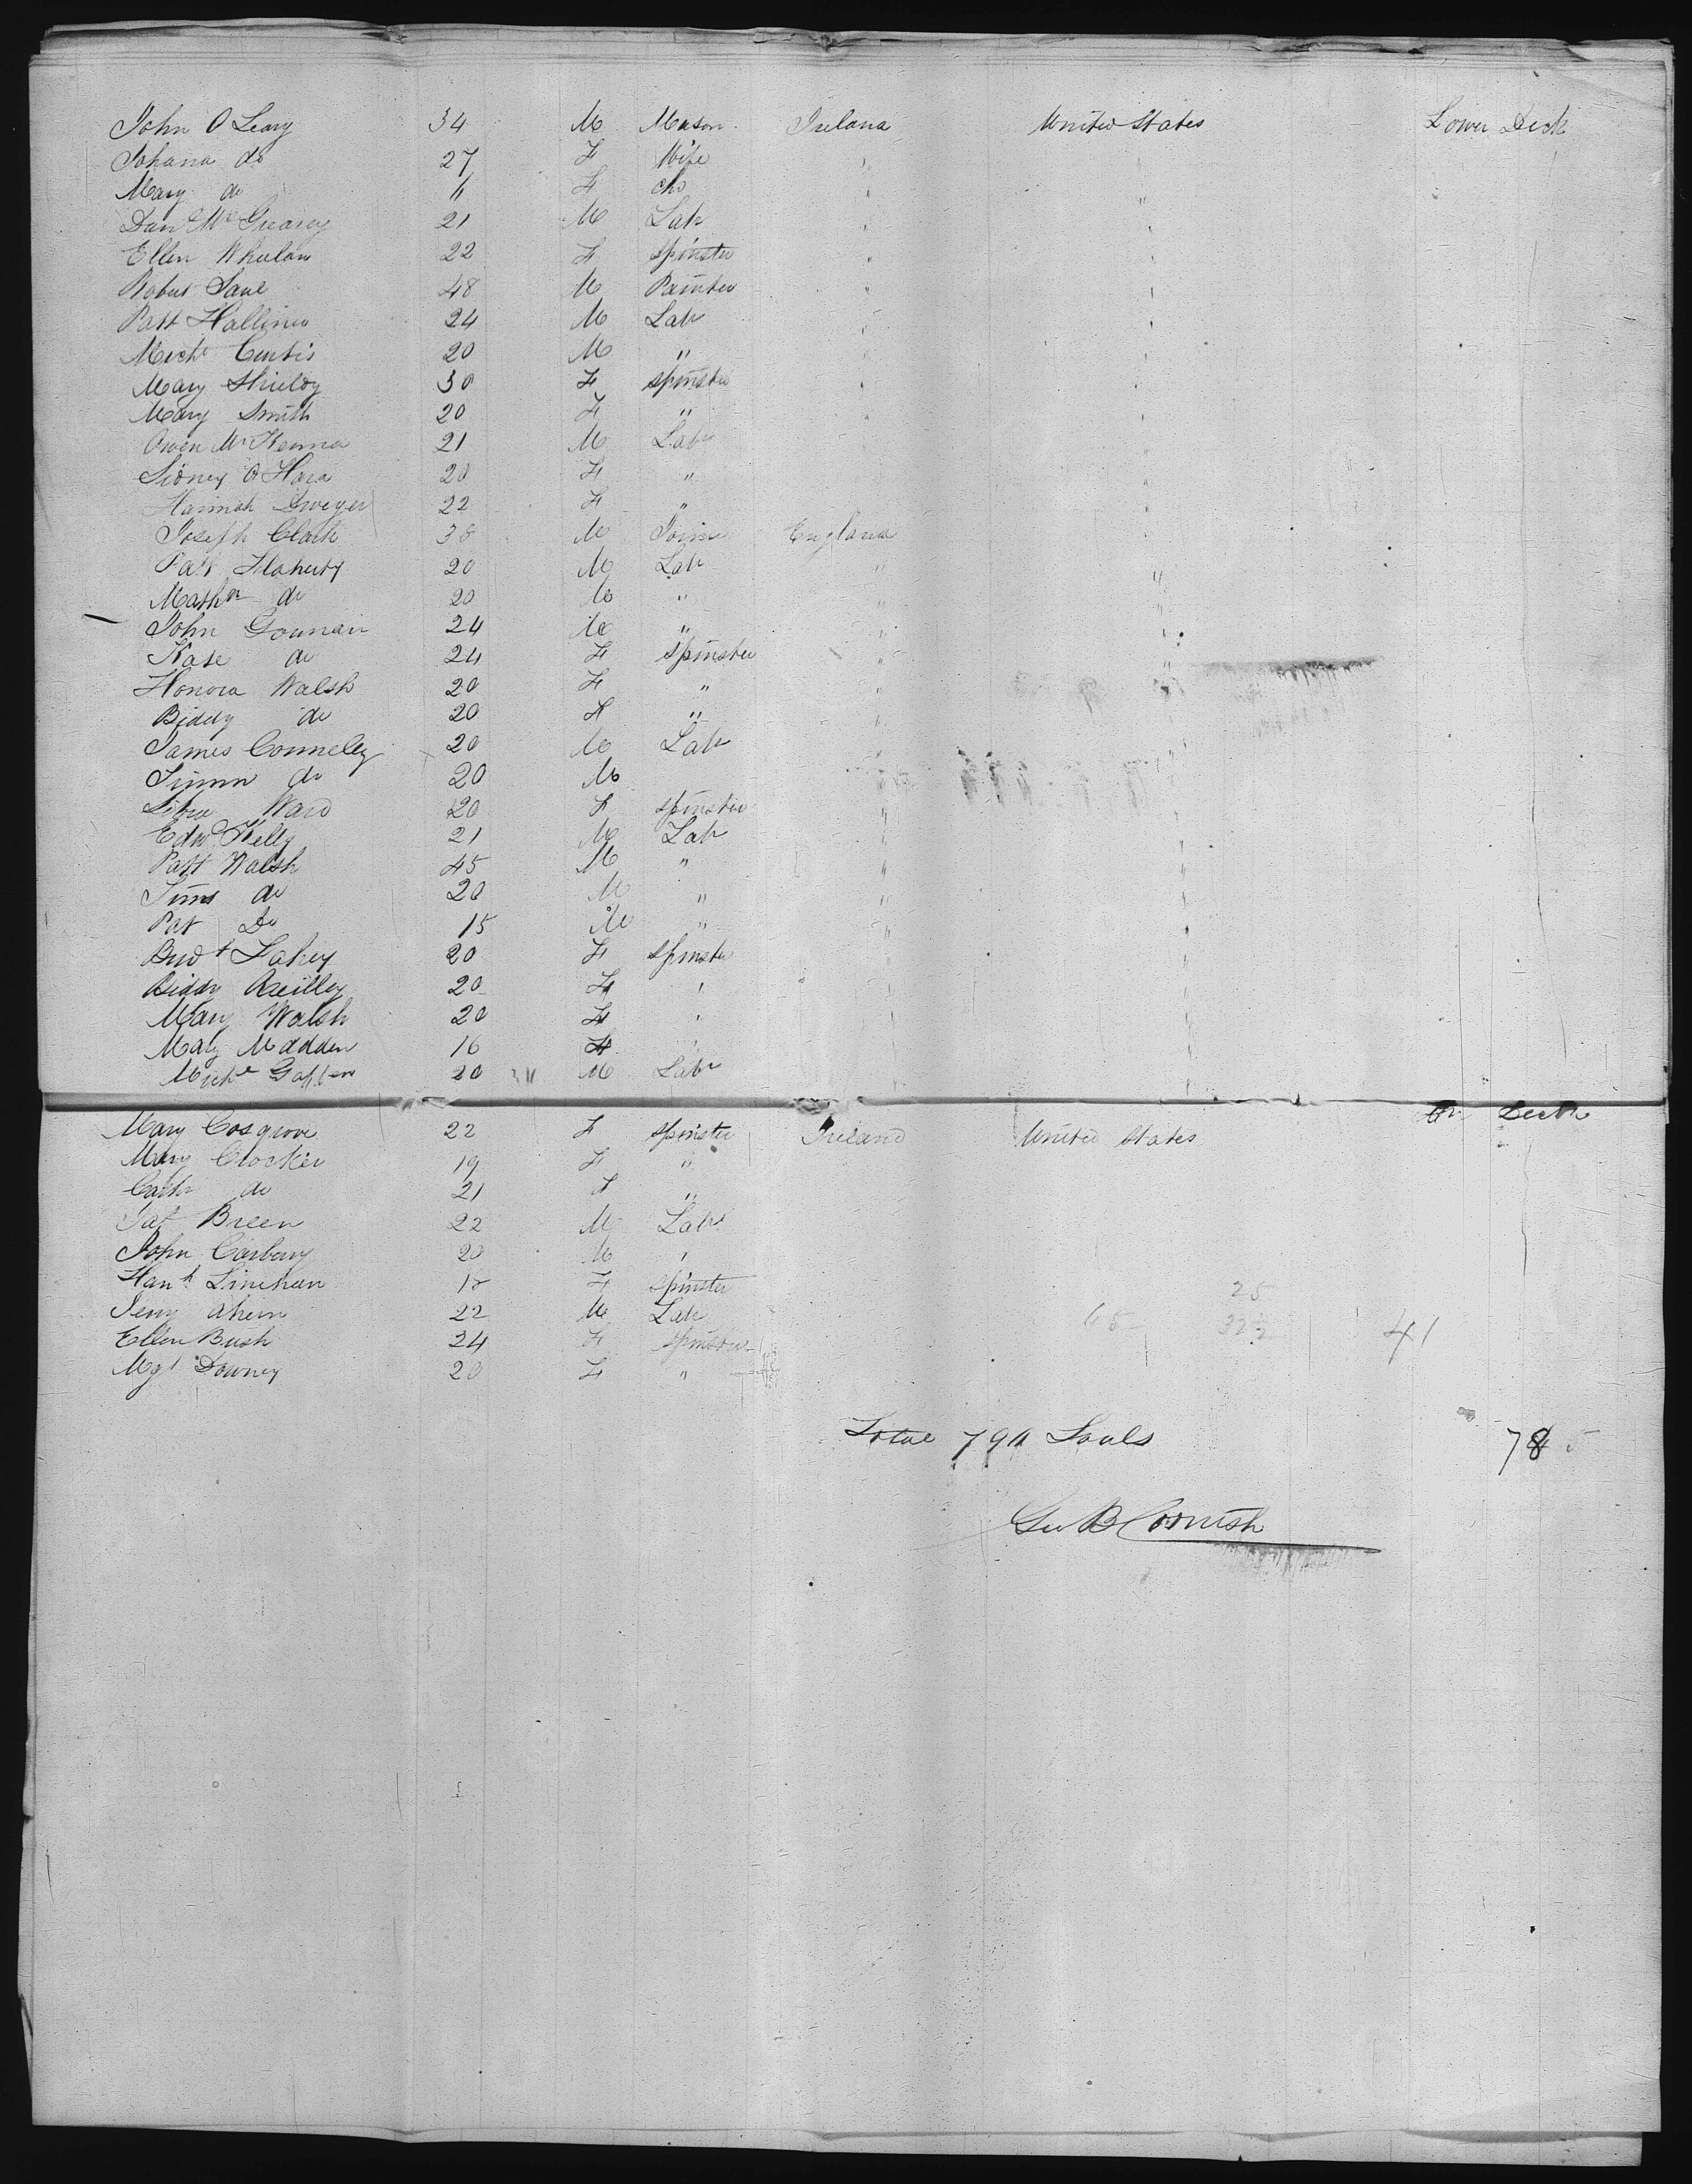 John O Leary 34 M Mason Ireland United States Lower Deck
Johana do 27 F Wife " "
Mary do 11 F ch " "
Dan McGrearey 21 M Labr " "
Ellen Whelan 22 F Spinster " "
Robert Lane 48 M Painter " "
Patt Hallinan 24 M Labr " "
Michl Curtis 20 M " " "
Mary Shieldy 30 F Spinster " "
Mary Smith 20 F " " "
Owen McKenna 21 M Labr "
Sidney O Hara 20 F " "
Hannah Dwyer 22 F " "
Joseph Clark 38 M Joiner England "
Patt Flaherty 20 M Labr " "
do 20 M " " "
John Gorman 24 M " " "
Kate do 24 F Spinster " "
Honora Walsh 20 F " " "
Biddy do 20 F " "
James Conneley 20 M Labr " "
do 20 M
Ward 20 F Spinster " "
Edwd Kelly 21 M Labr " "
Patt Walsh 45 M " " "
do 20 M " " "
Pat Do 15 M " " "
Bridt Fahey 20 F Spinster " "
Biddy Reilley 20 F " " "
Mary Walsh 20 F " " "
Maly Madden 16 F " " "
Michl 20 M Labr " "
Mary Cosgrove 22 F Spinster Ireland United States Deck
Mary Crocker 19 F "
Cathr do 21 F "
Pat Breen 22 M Labr
John Carbary 20 M "
Hanh Linehan 18 F Spinster
Jerry Ahern 22 M Labr
Ellen Bush 24 F Spinster
Mgt Downey 20 F "
25
65 32½ 41
Total 794 Souls 785
Geo B Cornish